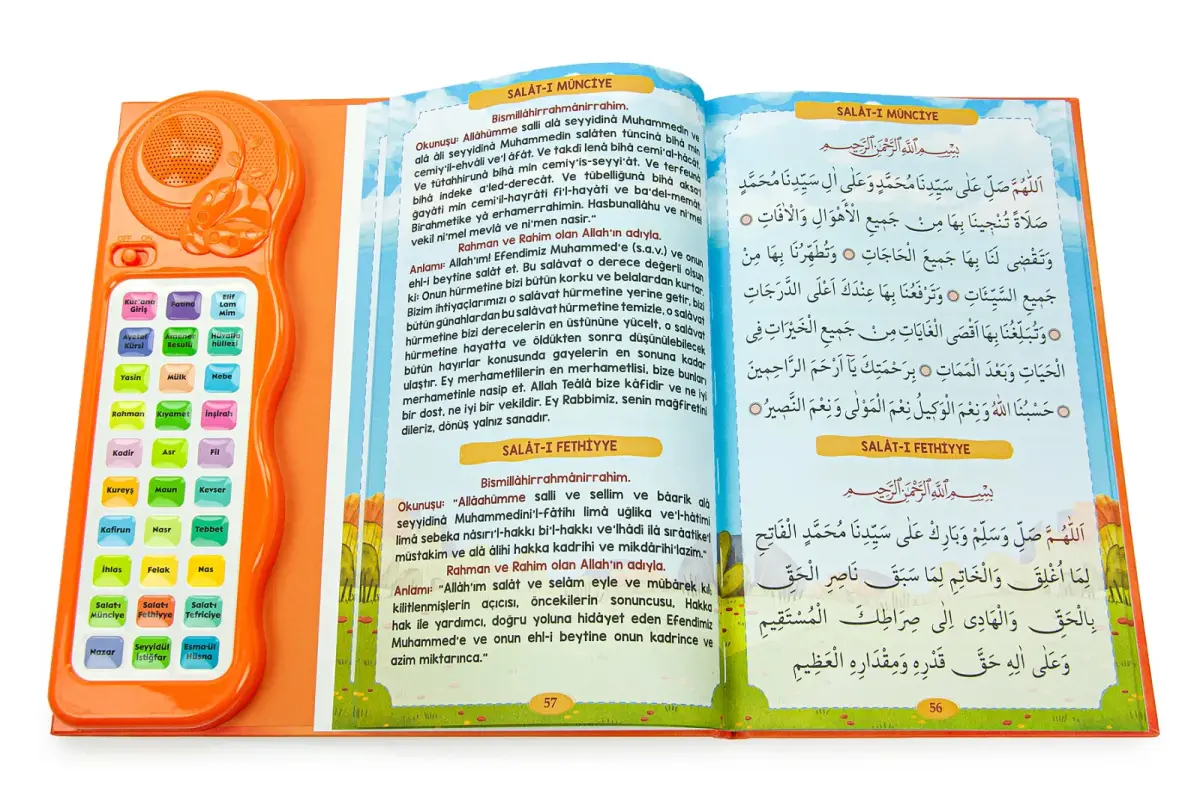 OFF ON
Kur'ana Giriş
Fatiha
Elif Lam Mim
Ayetel Kürsi
Amener Resulü
Hüvalla hüllezi
Yasin
Mülk
Nebe
Rahman
Kıyamet
İnşirah
Kadir
Asr
Fil
Kureyş
Maun
Kevser
Kafirun
Nasr
Tebbet
İhlas
Felak
Nas
Salat-ı Münciye
Salat-ı Fethiyye
Salat-ı Tefriciye
Nazar
Seyyidül İstiğfar
Esma-ül Hüsna
SALÂT-I MÜNCİYE
Bismillâhirrahmânirrahim.
Okunuşu: Allâhümme salli alâ seyyidinâ Muhammedin ve
alâ âli seyyidinâ Muhammedin salâten tüncinâ bihâ min
cemiy'il-ehvâli ve'l âfât. Ve takdî lenâ bihâ cemi'al-hâcât,
Ve tütahhirunâ bihâ min cemiy'is-seyyi'ât. Ve terfeunâ
bihâ indeke a'led-derecât. Ve tübelliğunâ bihâ aksa'l
ğayâti min cemii'il-hayrâti fi'l-hayâti ve ba'del-memât.
Birahmetike yâ erhamerrahimin. Hasbunallâhu ve ni'mel
vekil ni'mel mevlâ ve ni'men nasir."
Rahman ve Rahim olan Allah'ın adıyla.
Anlamı: Allah'ım! Efendimiz Muhammed'e (s.a.v.) ve onun
ehl-i beytine salât et. Bu salâvat o derece değerli olsun
ki: Onun hürmetine bizi bütün korku ve belalardan kurtar.
Bizim ihtiyaçlarımızı o salâvat hürmetine yerine getir, bizi
bütün günahlardan bu salâvat hürmetine temizle, o salâvat
hürmetine bizi derecelerin en üstününe yücelt, o salâvat
hürmetine hayatta ve öldükten sonra düşünülebilecek
bütün hayırlar konusunda gayelerin en sonuna kadar
ulaştır. Ey merhametlilerin en merhametlisi, bize bunları
merhametinle nasip et. Allah Teâlâ bize kâfidir ve ne iyi
bir dost, ne iyi bir vekildir. Ey Rabbimiz, senin mağfiretini
dileriz, dönüş yalnız sanadır.
SALÂT-I FETHİYYE
Bismillâhirrahmânirrahim.
Okunuşu: "Allâahümme salli ve sellim ve bâarik alâ
seyyidinâ Muhammedini'l-fâtihı limâ uğlika ve'l-hâtimi
limâ sebeka nâsırı'l-hakkı bi'l-hakkı ve'lhâdî ilâ sırâatike'l
müstakim ve alâ âlihi hakka kadrihi ve mikdârihi'lazim."
Rahman ve Rahim olan Allah'ın adıyla.
Anlamı: "Allâh'ım salât ve selâm eyle ve mübârek kıl,
kilitlenmişlerin açıcısı, öncekilerin sonuncusu, Hakka
hak ile yardımcı, doğru yoluna hidâyet eden Efendimiz
Muhammed'e ve onun ehl-i beytine onun kadrince ve
azim miktarınca."
57
SALÂT-I MÜNCİYE
بِسْمِ اللّٰهِ الرَّحْمٰنِ الرَّحِيمِ
اَللّٰهُمَّ صَلِّ عَلٰى سَيِّدِنَا مُحَمَّدٍ وَعَلٰى اٰلِ سَيِّدِنَا مُحَمَّدٍ
صَلَاةً تُنْجِينَا بِهَا مِنْ جَمِيعِ الْأَهْوَالِ وَالْاٰفَاتِ
وَتَقْضِى لَنَا بِهَا جَمِيعَ الْحَاجَاتِ وَتُطَهِّرُنَا بِهَا مِنْ
جَمِيعِ السَّيِّئَاتِ وَتَرْفَعُنَا بِهَا عِنْدَكَ أَعْلَى الدَّرَجَاتِ
وَتُبَلِّغُنَا بِهَا أَقْصَى الْغَايَاتِ مِنْ جَمِيعِ الْخَيْرَاتِ فِى
الْحَيَاتِ وَبَعْدَ الْمَمَاتِ بِرَحْمَتِكَ يَآ أَرْحَمَ الرَّاحِمِينَ
حَسْبُنَا اللّٰهُ وَنِعْمَ الْوَكِيلُ نِعْمَ الْمَوْلٰى وَنِعْمَ النَّصِيرُ
SALÂT-I FETHİYYE
بِسْمِ اللّٰهِ الرَّحْمٰنِ الرَّحِيمِ
اَللّٰهُمَّ صَلِّ وَسَلِّمْ وَبَارِكْ عَلٰى سَيِّدِنَا مُحَمَّدٍ الْفَاتِحِ
لِمَا اُغْلِقَ وَالْخَاتِمِ لِمَا سَبَقَ نَاصِرِ الْحَقِّ
بِالْحَقِّ وَالْهَادِى اِلٰى صِرَاطِكَ الْمُسْتَقِيمِ
وَعَلٰى اٰلِهِ حَقَّ قَدْرِهِ وَمِقْدَارِهِ الْعَظِيمِ
56